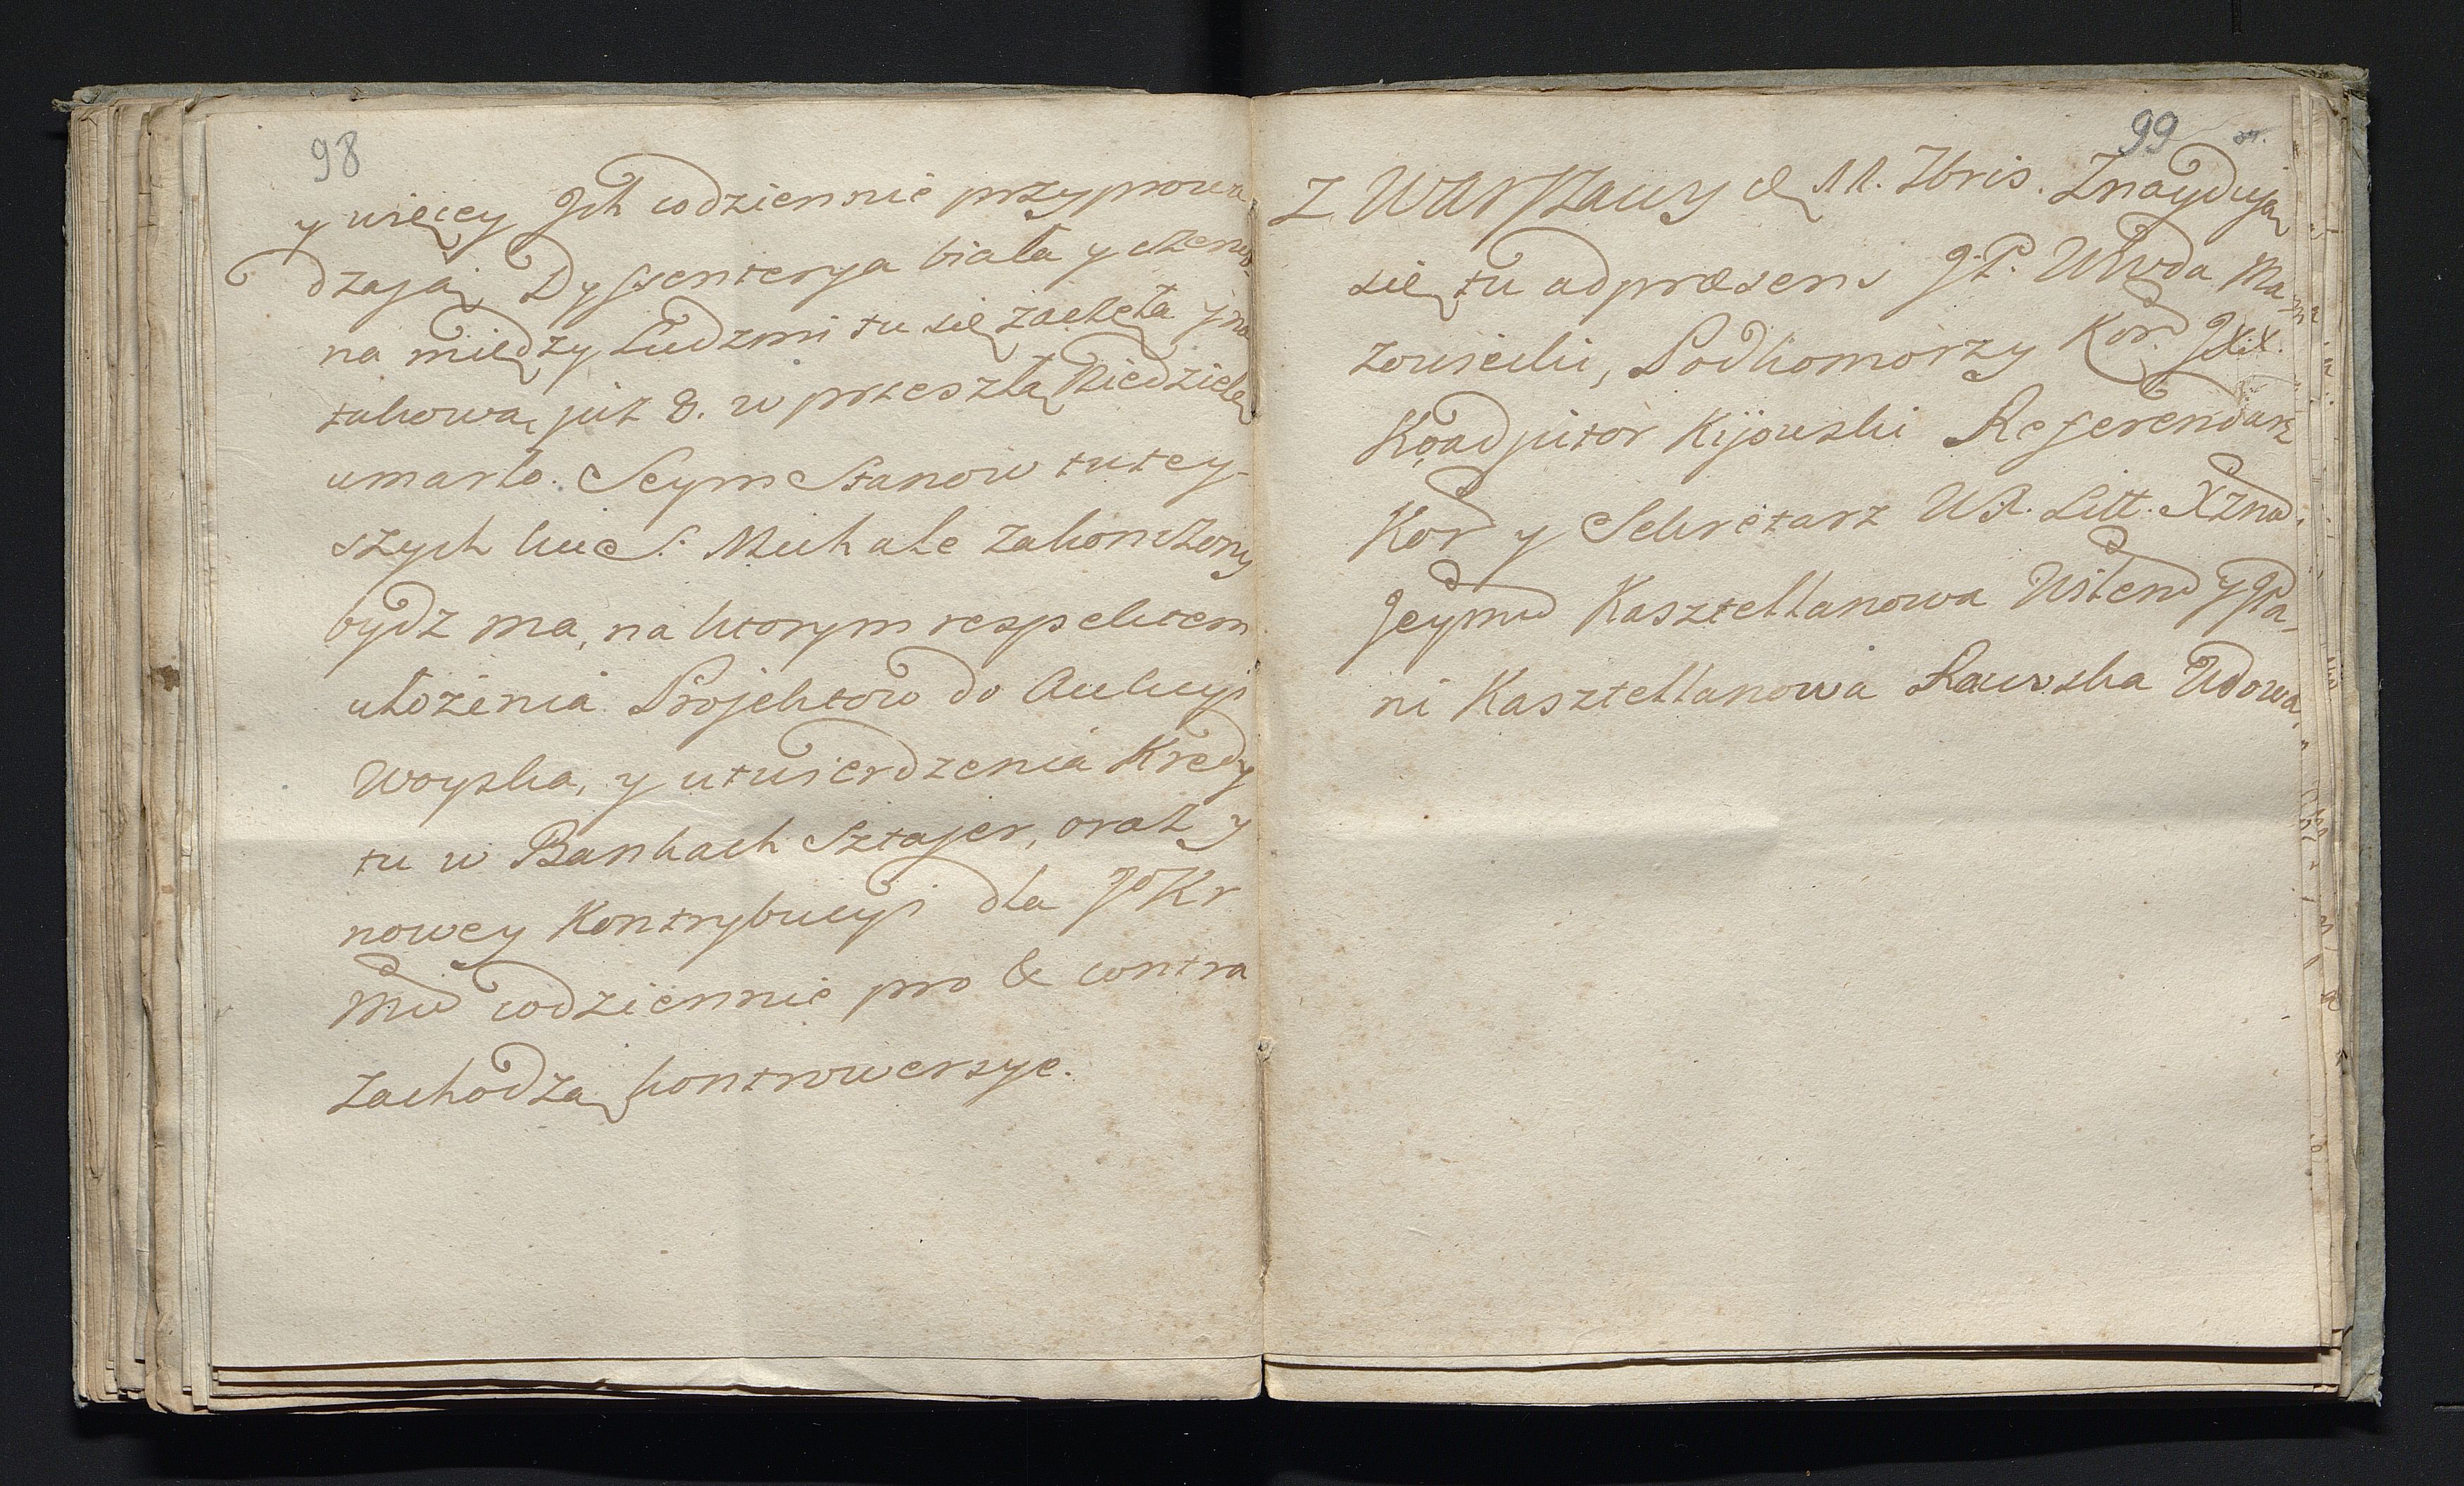 98
y więcey Jch codziennie przyprowa
dzają, Dyssenterya biała y czerwo-
na między Ludzmi tu się zaczęła y na
takową już 8. w przeszłą Niedzielę
umarło. Seym Stanow tutey-
szych ku S. Michale zakonczony
bydz ma, na ktorym respektem
ułożenia Projektow do Aukcyi
Woyska, y utwierdzenia Kredy
tu w Bankach Sztajer, oraz y
nowey Kontrybucyi dla JKr
Mci codziennie pro & contra
zachodzą kontrowersye.
99
Z Warszawy d 11. 7bris. Znaydują
się tu ad præsens JP. Wwda Ma-
zowiecki, Podkomorzy Kor. JXX.
Koadjutor Kijowski Referendarz
Kor y Sekretarz W.X. Litt. Xżna
Jeymć Kasztellanowa Wilen y Pa-
ni Kasztellanowa Rawska Wdowa,